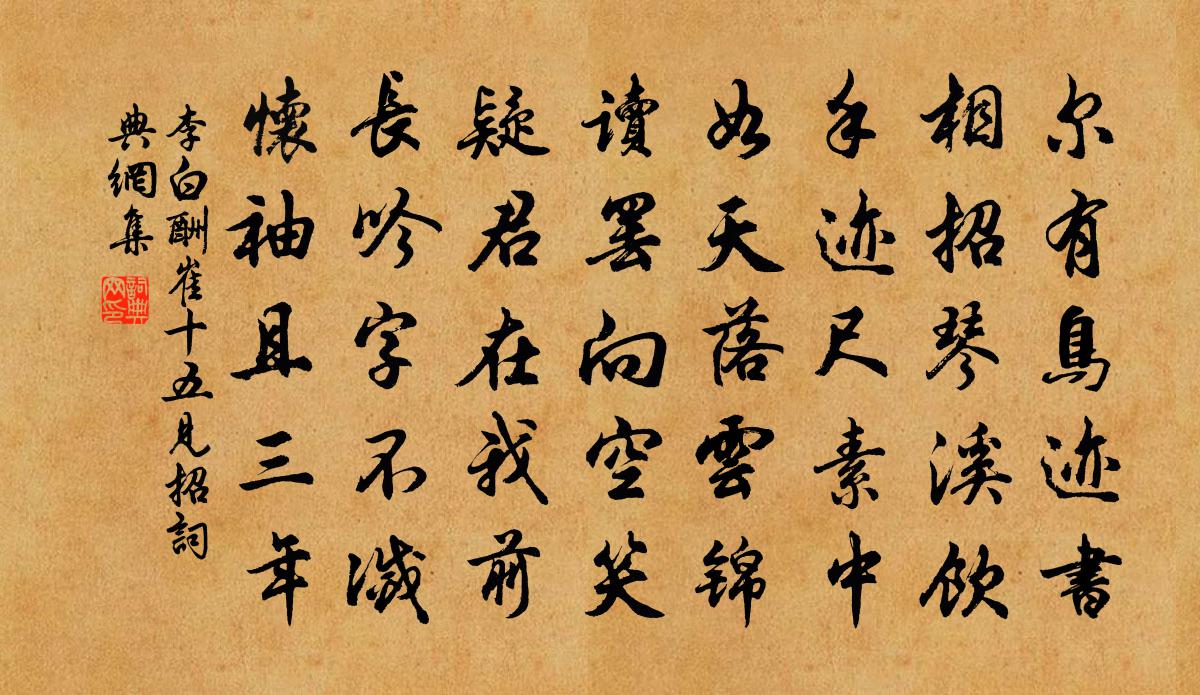 尔有鳥迹書
相招琴溪飲
手迹尺素中
如天落雲錦
讀罷向空笑
疑君在我前
長吟字不滅
懷袖且三年
李白酬崔十五見招詞
典網集
詞典
网印